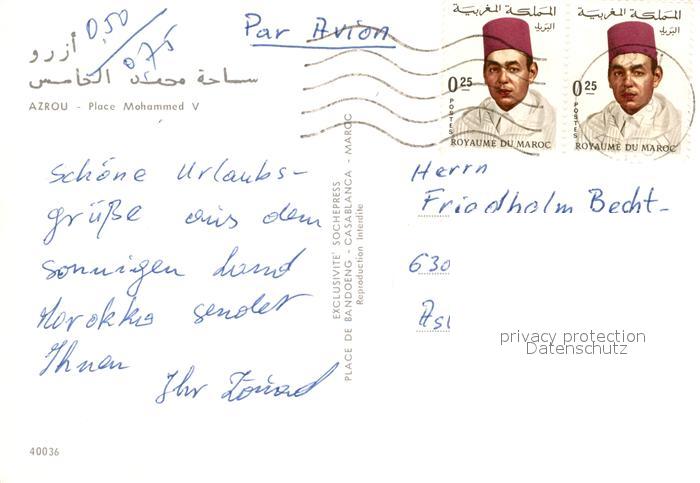 أزرو
ساحة محمد الخامس
AZROU - Place Mohammed V
0,50
0,75
Par Avion
المملكة المغربية
البريد
0.25
POSTES
ROYAUME DU MAROC
المملكة المغربية
البريد
0.25
POSTES
ROYAUME DU MAROC
Schöne Urlaubs-
grüße aus dem
sonnigen Land
Marokko sendet
Ihnen
Ihr
EXCLUSIVITÉ SOCHEPRESS
PLACE DE BANDOENG - CASABLANCA - MAROC
Reproduction Interdite
Herrn
Friedhelm Becht-
630
privacy protection
Datenschutz
40036